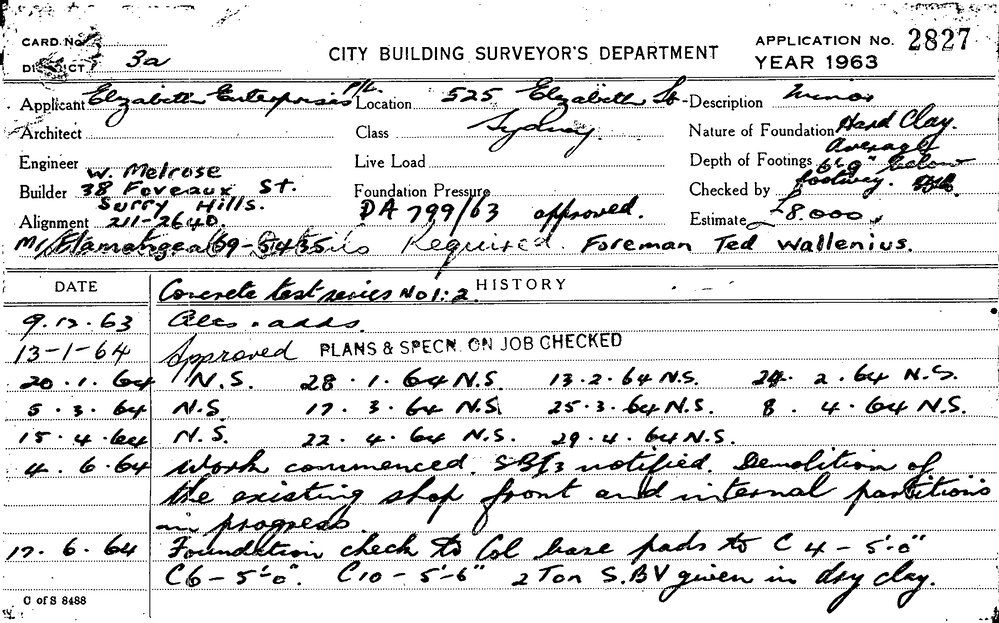 CARD No.
CITY BUILDING SURVEYOR'S DEPARTMENT
APPLICATION No. 2827
DISTRICT 3a
YEAR 1963
Applicant Elizabeth Enterprises P/L. Location 525 Elizabeth St - Description Minor
Architect Class Sydney Nature of Foundation Hard Clay.
Average
Engineer W. Melrose Live Load Depth of Footings 6'9" below
Builder 38 Foveaux St. Foundation Pressure footway. Checked by
Surry Hills.
Alignment 211-2640 DA 799/63 approved. Estimate £8.000
Mr 69-5435 Details Required. Foreman Ted Wallenius.
DATE HISTORY
Concrete test series No 1:2.
9.12.63 Alts. adds.
13-1-64 Approved PLANS & SPECN. ON JOB CHECKED
20.1.64 N.S. 28.1.64 N.S. 13.2.64 N.S. 24.2.64 N.S.
5.3.64 N.S. 17.3.64 N.S. 25.3.64 N.S. 8.4.64 N.S.
15.4.64 N.S. 22.4.64 N.S. 29.4.64 N.S.
4.6.64 Work commenced. notified. Demolition of
the existing shop front and internal partitions
in progress.
17.6.64 Foundation check to Col base pads to C4-5'-0"
C6-5'-0". C10-5'-6" 2 Ton S.B V given in dry clay.
C of S 8488